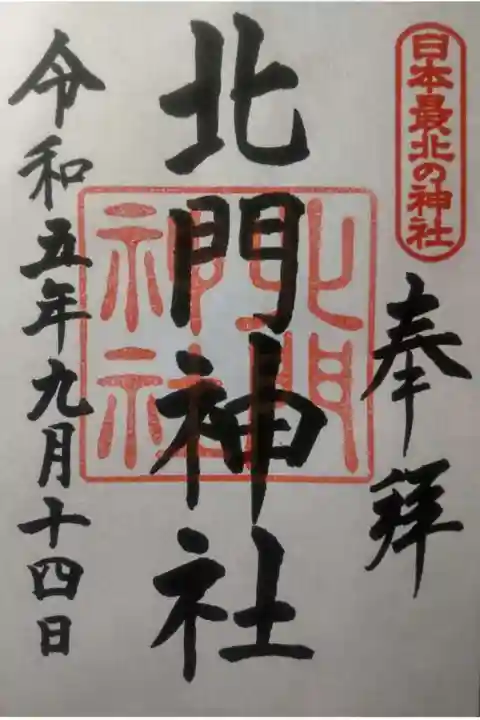 日本最北の神社
奉拝
北門神社
北門神社
令和五年九月十四日